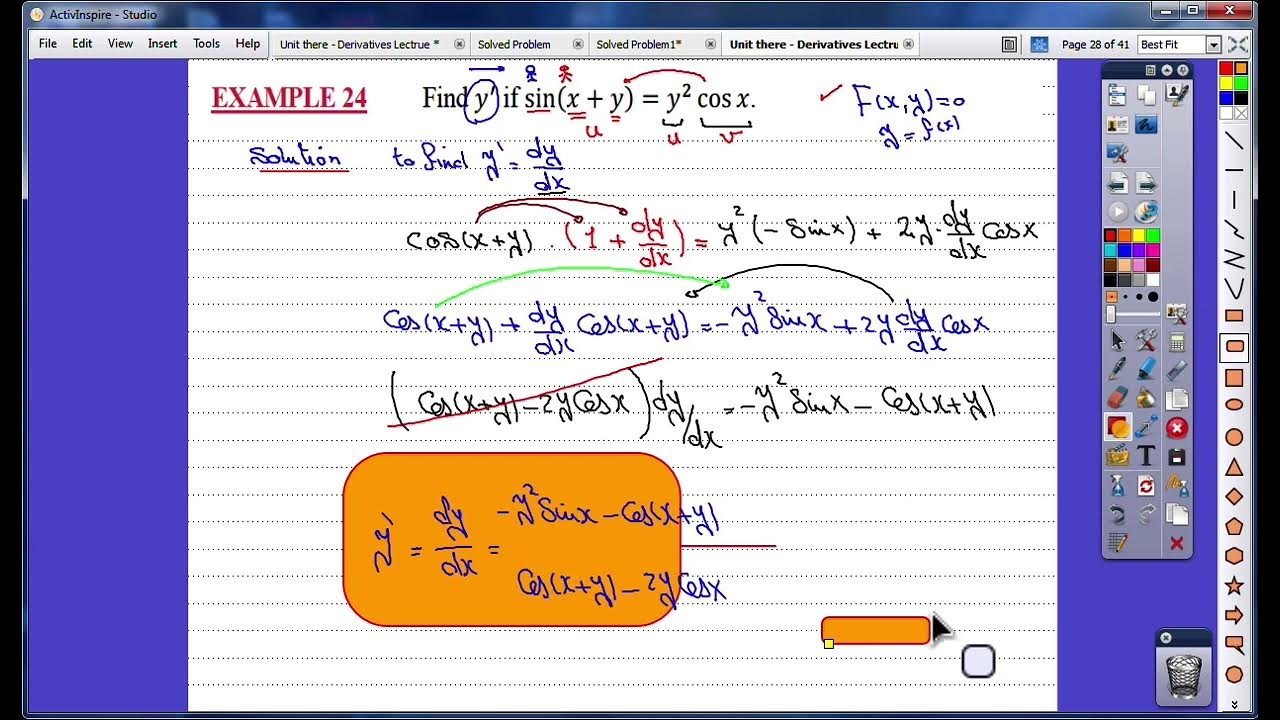 ActivInspire - Studio
File Edit View Insert Tools Help
Unit there - Derivatives Lectrue * Solved Problem Solved Problem1* Unit there - Derivatives Lectru Page 28 of 41 Best Fit
EXAMPLE 24 Find y' if sin(x + y) = y² cos x. F(x,y)=0
u u v y = f(x)
Solution to find y' = dy/dx
cos(x+y) . (1 + dy/dx) = y²(- sinx) + 2y . dy/dx cosx
Cos(x+y) + dy/dx Cos(x+y) = - y² sinx + 2y dy/dx Cosx
(Cos(x+y) - 2y Cosx) dy/dx = - y² sinx - Cos(x+y)
y' = dy/dx = - y² sinx - Cos(x+y)
Cos(x+y) - 2y Cosx